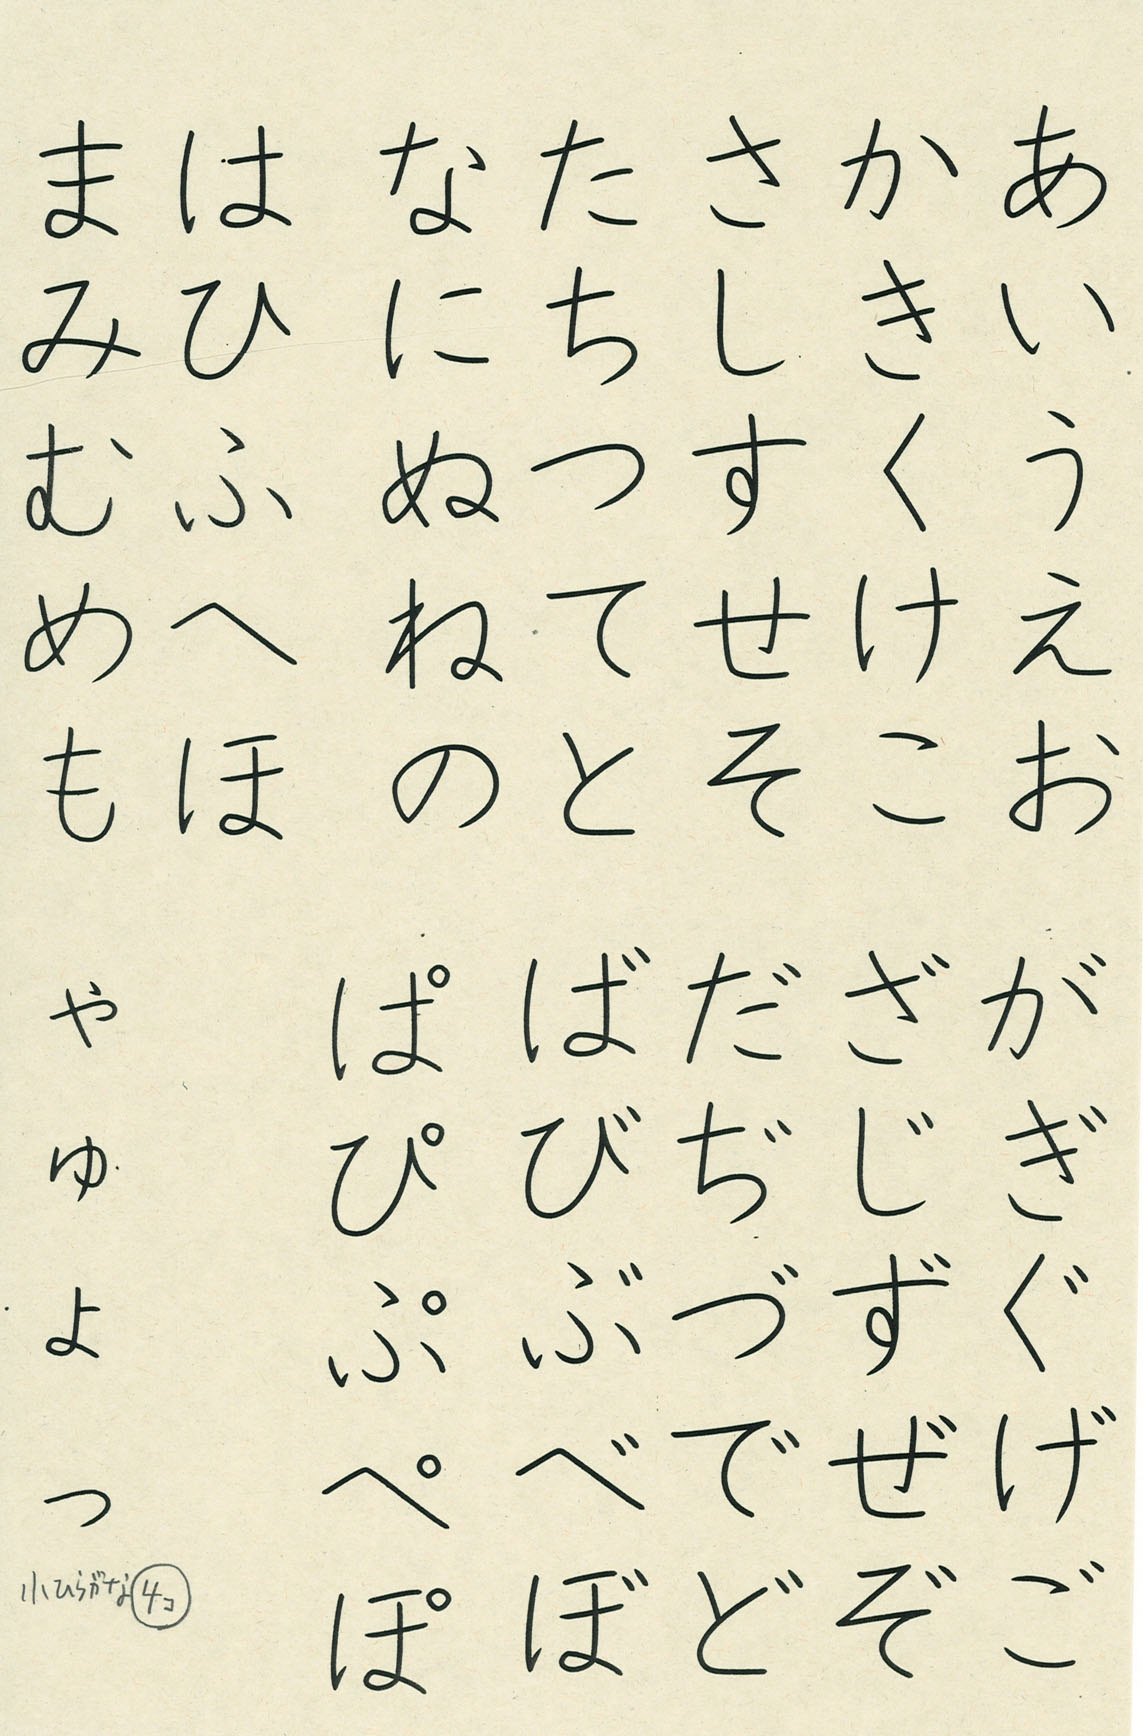 あいうえお
かきくけこ
さしすせそ
たちつてと
なにぬねの
はひふへほ
まみむめも
がぎぐげご
ざじずぜぞ
だぢづでど
ばびぶべぼ
ぱぴぷぺぽ
ゃゅょっ
小ひらがな4コ